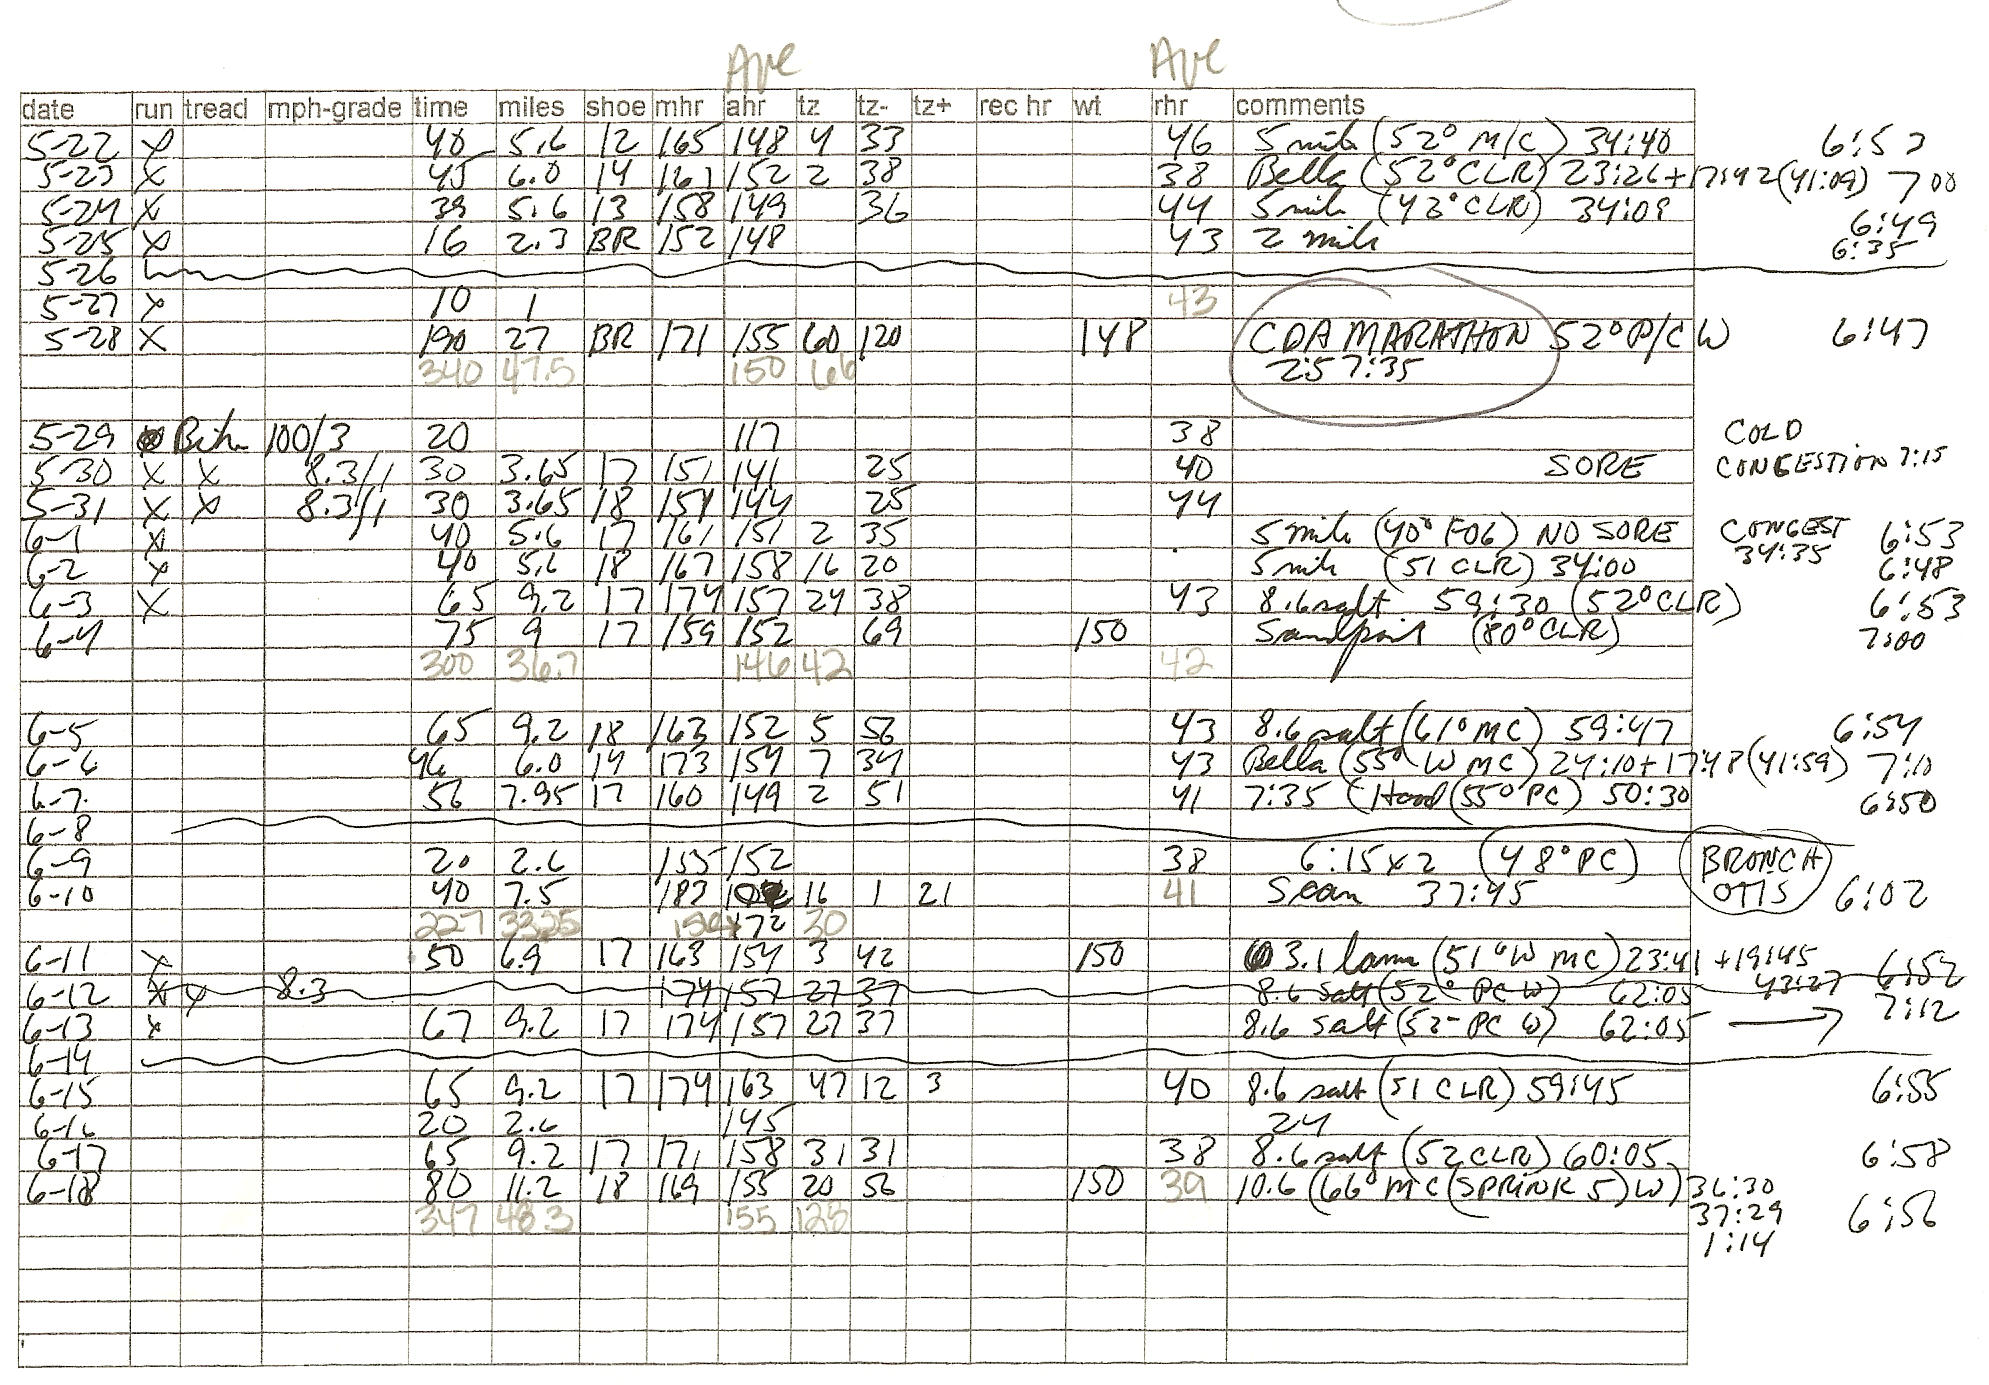 Ave Ave
date run tread mph-grade time miles shoe mhr ahr tz tz- tz+ rec hr wt rhr comments
5-22 x 40 5.6 12 165 148 4 33 46 5 mile (52° M/C) 34:40
5-23 x 45 6.0 14 161 152 2 38 38 Bella (52° CLR) 23:26+17:42 (41:09) 7:00
5-24 x 39 5.6 13 158 149 36 44 5 mile (43° CLR) 34:09 6:49
5-25 x 16 2.3 BR 152 148 43 2 mile 6:35
5-26
5-27 x 10 1 43
5-28 x 190 27 BR 171 155 60 120 148 CDA MARATHON 52° P/C W 6:47
340 47.5 150 66 2:57:35
5-29 Bike 100/3 20 117 38 COLD
5-30 x x 8.3/1 30 3.65 17 151 141 25 40 SORE CONGESTION 7:15
5-31 x x 8.3/1 30 3.65 18 151 144 25 44
6-1 x 40 5.6 17 161 151 2 35 5 mile (40° FOG) NO SORE CONGEST 34:35 6:53
6-2 x 40 5.6 18 167 158 16 20 5 mile (51 CLR) 34:00 6:48
6-3 x 65 9.2 17 174 157 24 38 43 8.6 salt 59:30 (52° CLR) 6:53
6-4 75 9 17 159 152 69 150 Sandpoint (80° CLR) 7:00
300 36.7 146 42 42
6-5 65 9.2 18 163 152 5 56 43 8.6 salt (61° MC) 59:47 6:54
6-6 46 6.0 14 173 154 7 34 43 Bella (55° W MC) 24:10+17:48 (41:59) 7:10
6-7 56 7.95 17 160 149 2 51 41 7:35 (Hood (55° PC) 50:30 6:50
6-8
6-9 20 2.6 155 152 38 6:15 x 2 (48° PC) BRONCH
6-10 40 7.5 183 16 1 21 41 Sean 37:45 OTIS 6:02
227 33.25 154 172 30
6-11 x 50 6.9 17 163 154 3 42 150 3.1 lama (51° W MC) 23:41 +19:45 43:27 6:52
6-12 x x 8.3 174 157 27 37 8.6 salt (52° PC W) 62:05
6-13 x 67 9.2 17 174 157 27 37 8.6 salt (52- PC W) 62:05 → 7:12
6-14
6-15 65 9.2 17 174 163 47 12 3 40 8.6 salt (51 CLR) 59:45 6:55
6-16 20 2.6 145 24
6-17 65 9.2 17 171 158 31 31 38 8.6 salt (52 CLR) 60:05 6:58
6-18 80 11.2 18 169 155 20 56 150 39 10.6 (66° MC (SPRINK 5) W) 36:30
347 48.3 155 128 37:29 6:56
1:14